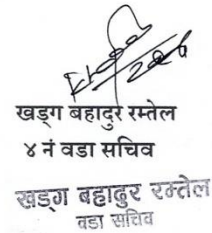 खड्ग बहादुर रम्तेल
४ नं वडा सचिव
खड्ग बहादुर रम्तेल
वडा सचिव